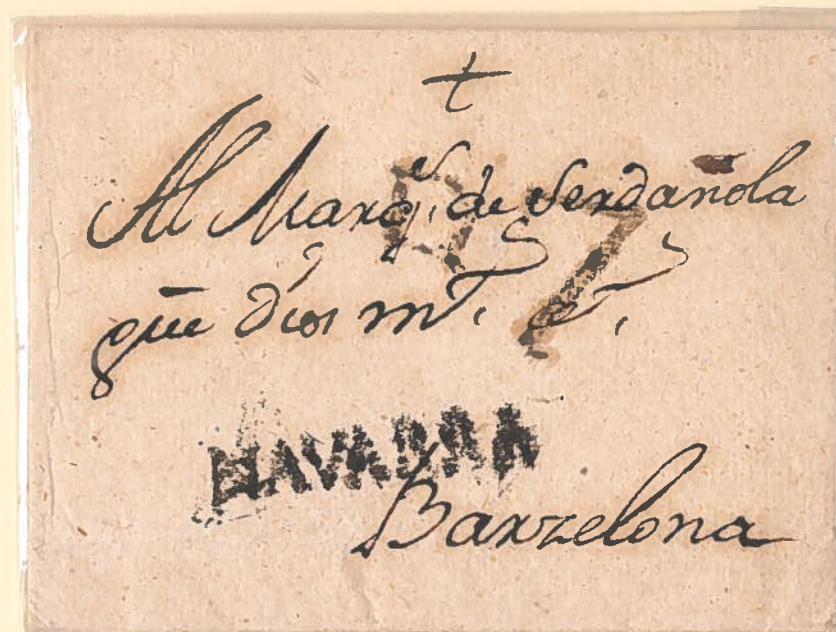 +
Al Marq.es de Serdañola
que Dios m.s a.s
NAVARRA
Barzelona